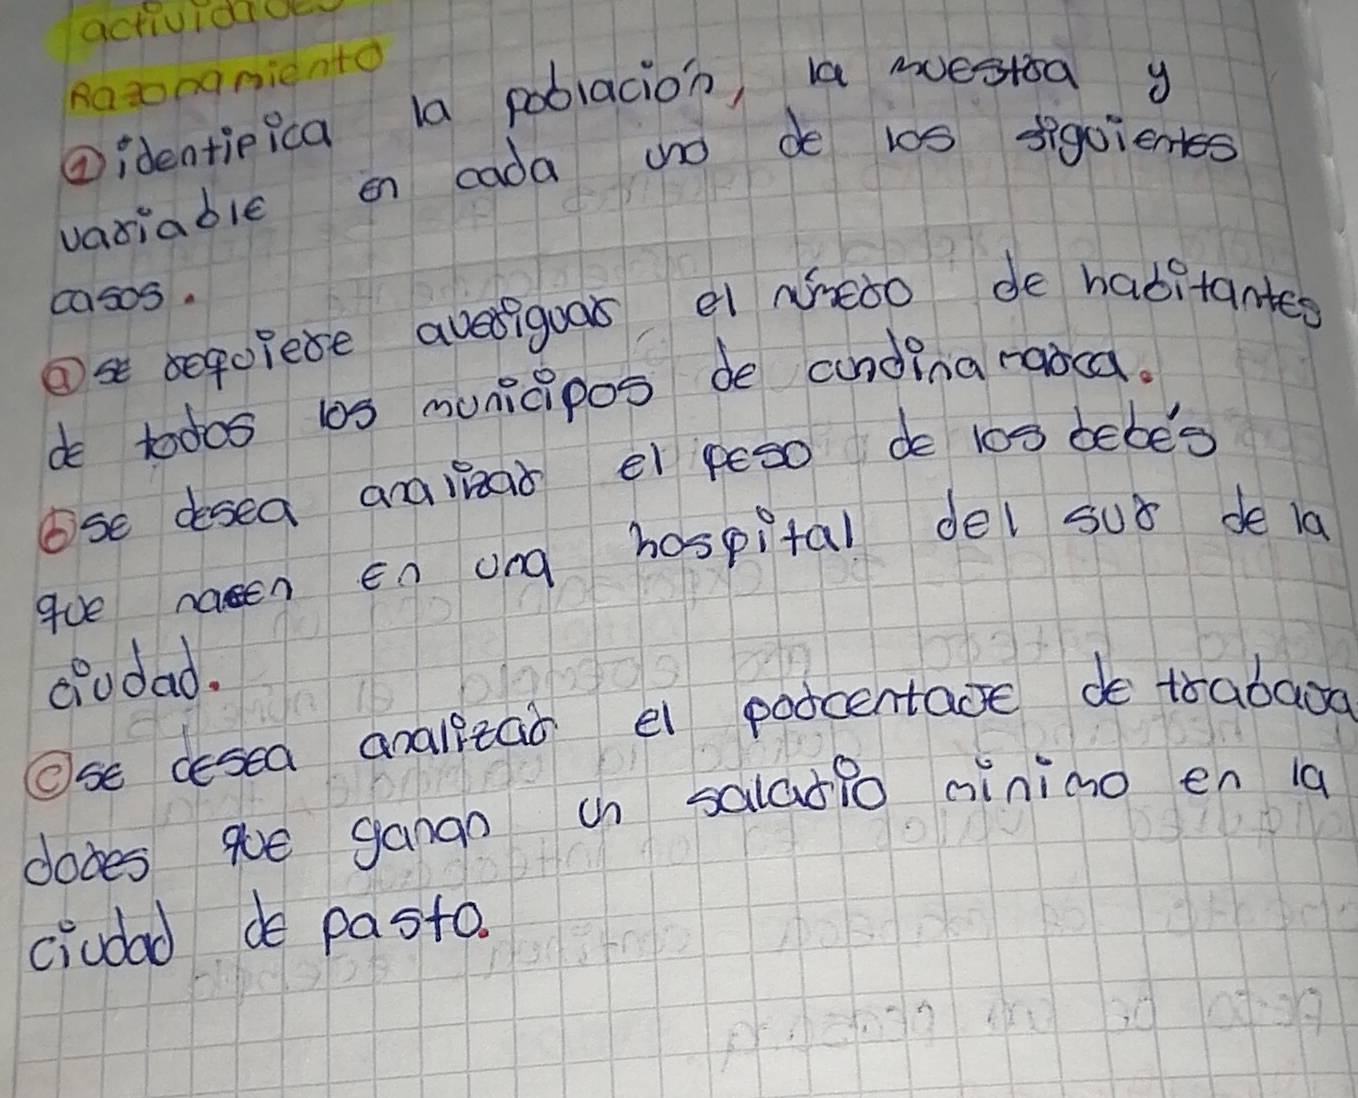 actividades
Razonamiento
① identifica la población, la muestra y
variable en cada uno de los siguientes
casos.
ⓐ se requiere averiguar el número de habitantes
de todos los municipos de cundinamarca.
ⓑ se desea analizar el peso de los bebés
que nacen en una hospital del sur de la
ciudad.
ⓒ se desea analizar el porcentaje de trabaja
dores que ganan un salario minimo en la
ciudad de pasto.